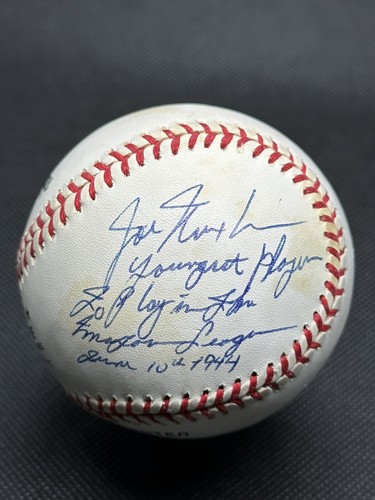 Joe Nuxhall
Youngest Player
To Play in The
Major League
June 10th 1944